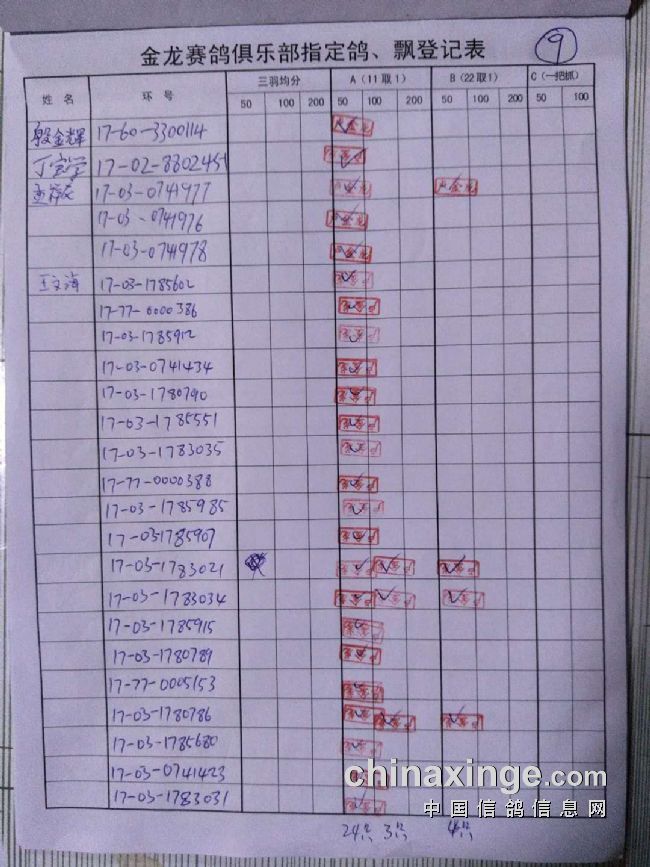 金龙赛鸽俱乐部指定鸽、飘登记表
9
姓 名 环 号 三羽均分 A（11取1） B（22取1） C（一把抓）
50 100 200 50 100 200 50 100 200 50 100
殷金辉 17-60-3300114
17-02-8802451
17-03-0741977
17-03-0741976
17-03-0741978
王文海 17-03-1785602
17-77-0000386
17-03-1785912
17-03-0741434
17-03-1780790
17-03-1785551
17-03-1783035
17-77-0000388
17-03-1785985
17-031785907
17-03-1783021
17-03-1783034
17-03-1785915
17-03-1780789
17-77-0005153
17-03-1780786
17-03-1785680
17-03-0741423
17-03-1783031
24只 3只 4只
chinaxinge.com
中国信鸽信息网